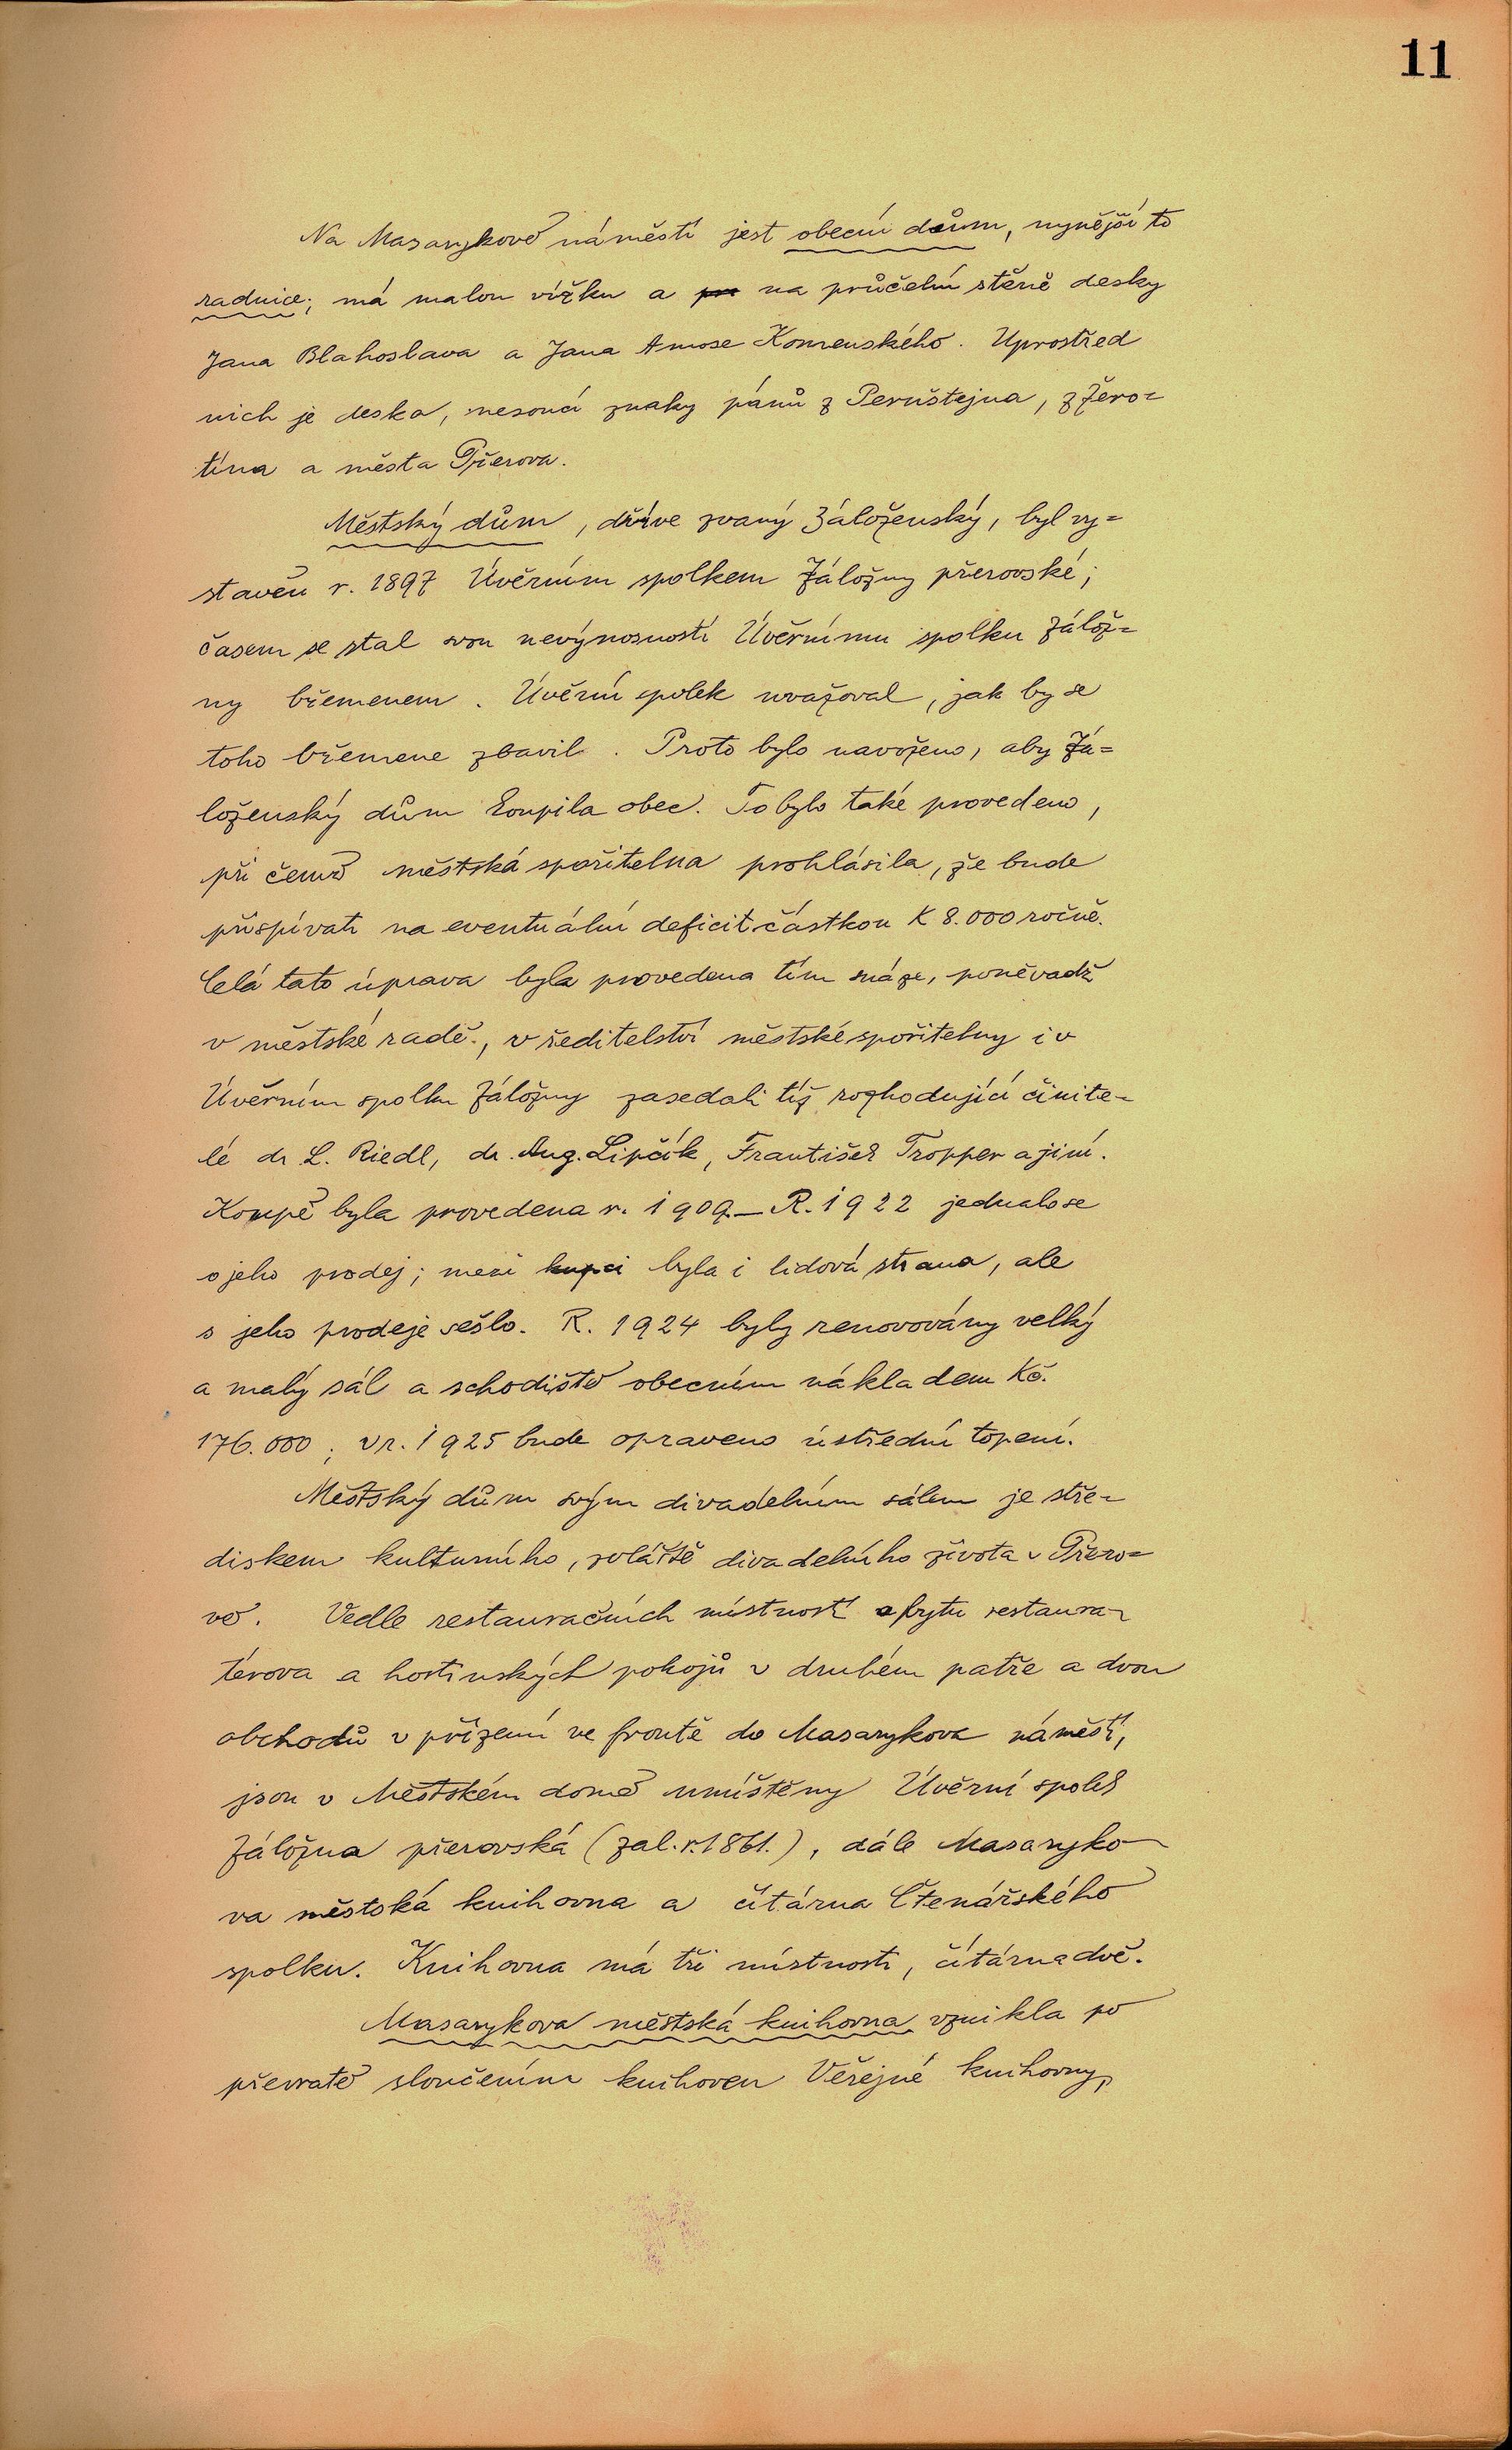 11
Na Masarykově náměstí jest obecní dům, nynější to
radnice; má malou vížku a na průčelní stěně desky
Jana Blahoslava a Jana Amose Komenského. Uprostřed
nich je deska, nesoucí znaky pánů z Pernštejna, z Žero=
tína a města Přerova.
Městský dům, dříve zvaný Záloženský, byl vy=
stavěn r. 1897 Úvěrním spolkem Záložny přerovské;
časem se stal svou nevýnosností Úvěrnímu spolku Zálož=
ny břemenem. Úvěrní spolek uvažoval, jak by se
toho břemene zbavil. Proto bylo navrženo, aby Zá=
loženský dům koupila obec. To bylo také provedeno,
při čemž městská spořitelna prohlásila, že bude
přispívati na eventuální deficit částkou K 8.000 ročně.
Celá tato úprava byla provedena tím snáze, poněvadž
v městské radě, v ředitelství městské spořitelny i v
Úvěrním spolku Záložny zasedali tíž rozhodující činite-
lé dr. L. Riedl, dr. Aug. Lipčík, František Tropper a jiní.
Koupě byla provedena r. 1909. – R. 1922 jednalo se
o jeho prodej; mezi kupci byla i lidová strana, ale
s jeho prodeje sešlo. R. 1924 byly renovovány velký
a malý sál a schodiště obecním nákladem Kč.
176.000; v r. 1925 bude opraveno ústřední topení.
Městský dům svým divadelním sálem je stře-
diskem kulturního, zvláště divadelního života v Přero=
vě. Vedle restauračních místností a bytu restaura-
térova a hostinských pokojů v druhém patře a dvou
obchodů v přízemí ve frontě do Masarykova náměstí,
jsou v Městském domě umístěny Úvěrní spolek
Záložna přerovská (zal. r. 1861.), dále Masaryko-
va městská knihovna a čítárna Čtenářského
spolku. Knihovna má tři místnosti, čítárna dvě.
Masarykova městská knihovna vznikla po
převratě sloučením knihoven Veřejné knihovny,